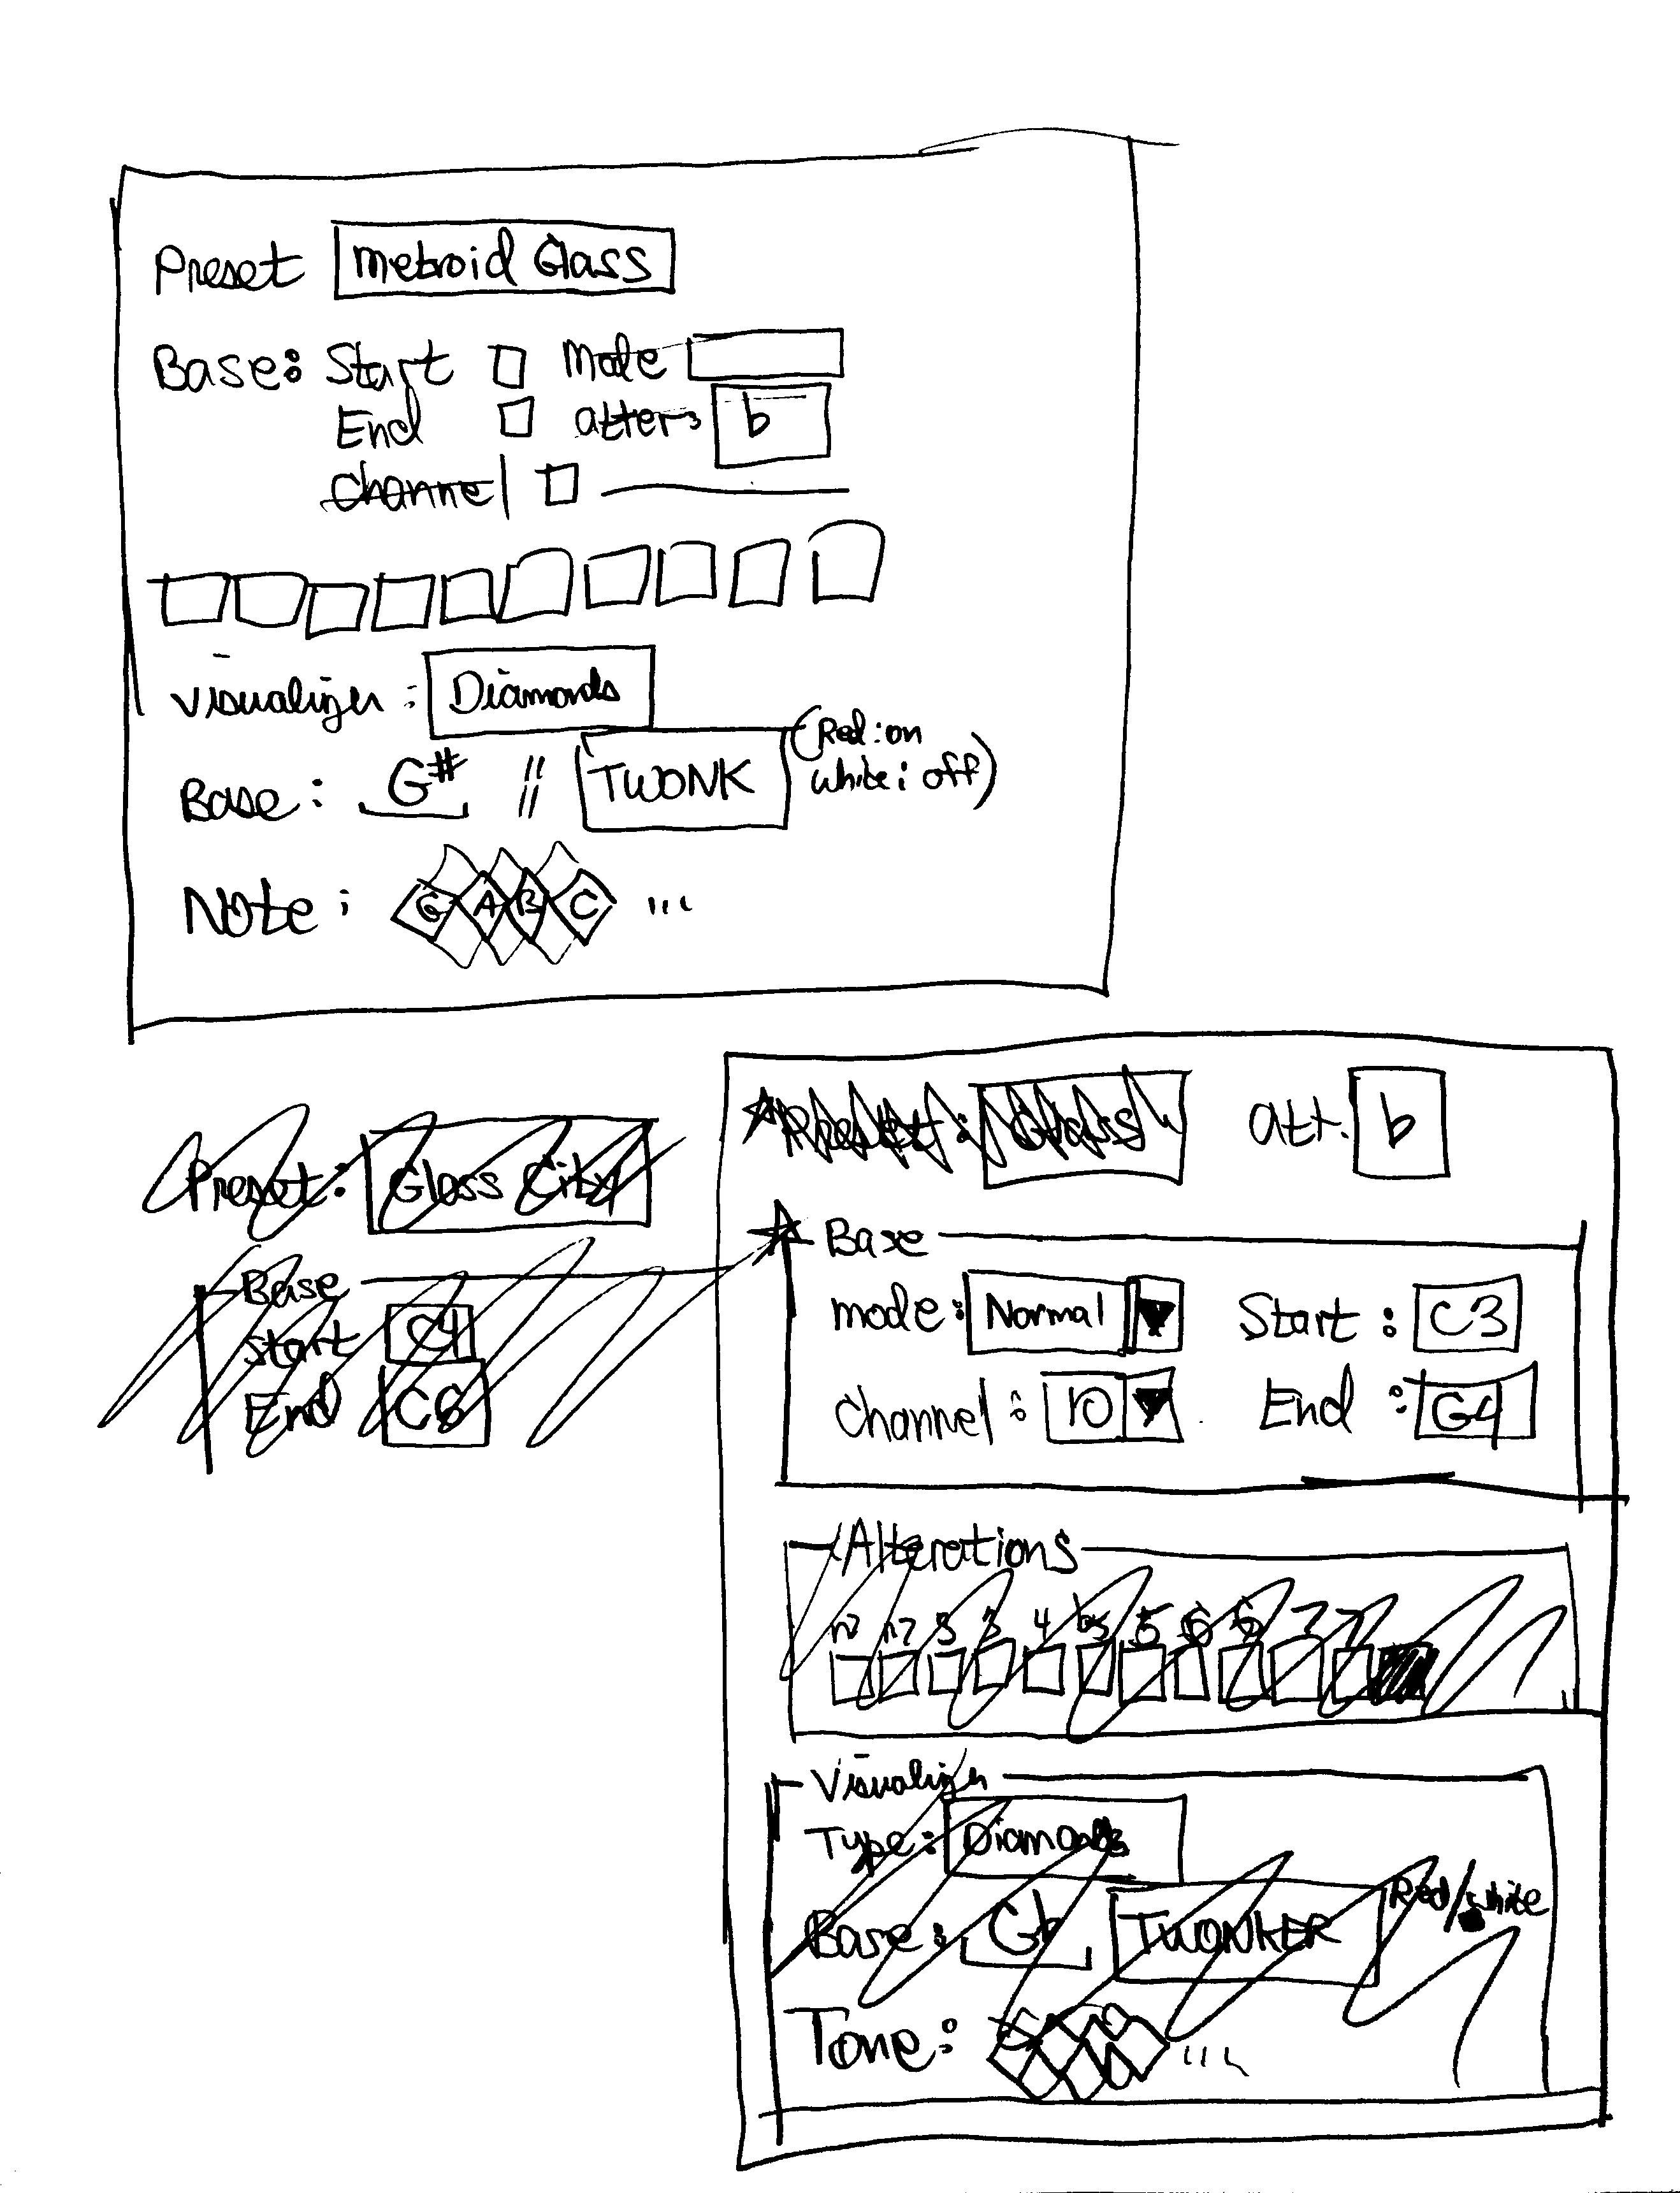 Preset Metroid Glass
Base: Start Mode
End alter: b
Channel
Visualizer: Diamonds
Base: G# // TWONK (Red: on
white: off)
Note: G A B C ...
Preset: Glass att. b
Preset: Glass City
Base
mode: Normal Start: C3
Channel: 10 End: G4
Base
Start C4
End C6
Alterations
3 3 4 b5 5 6 6 7 7
Visualizer
Type: Diamonds
Base: Gb TWONKER Red/white
Tone: ...